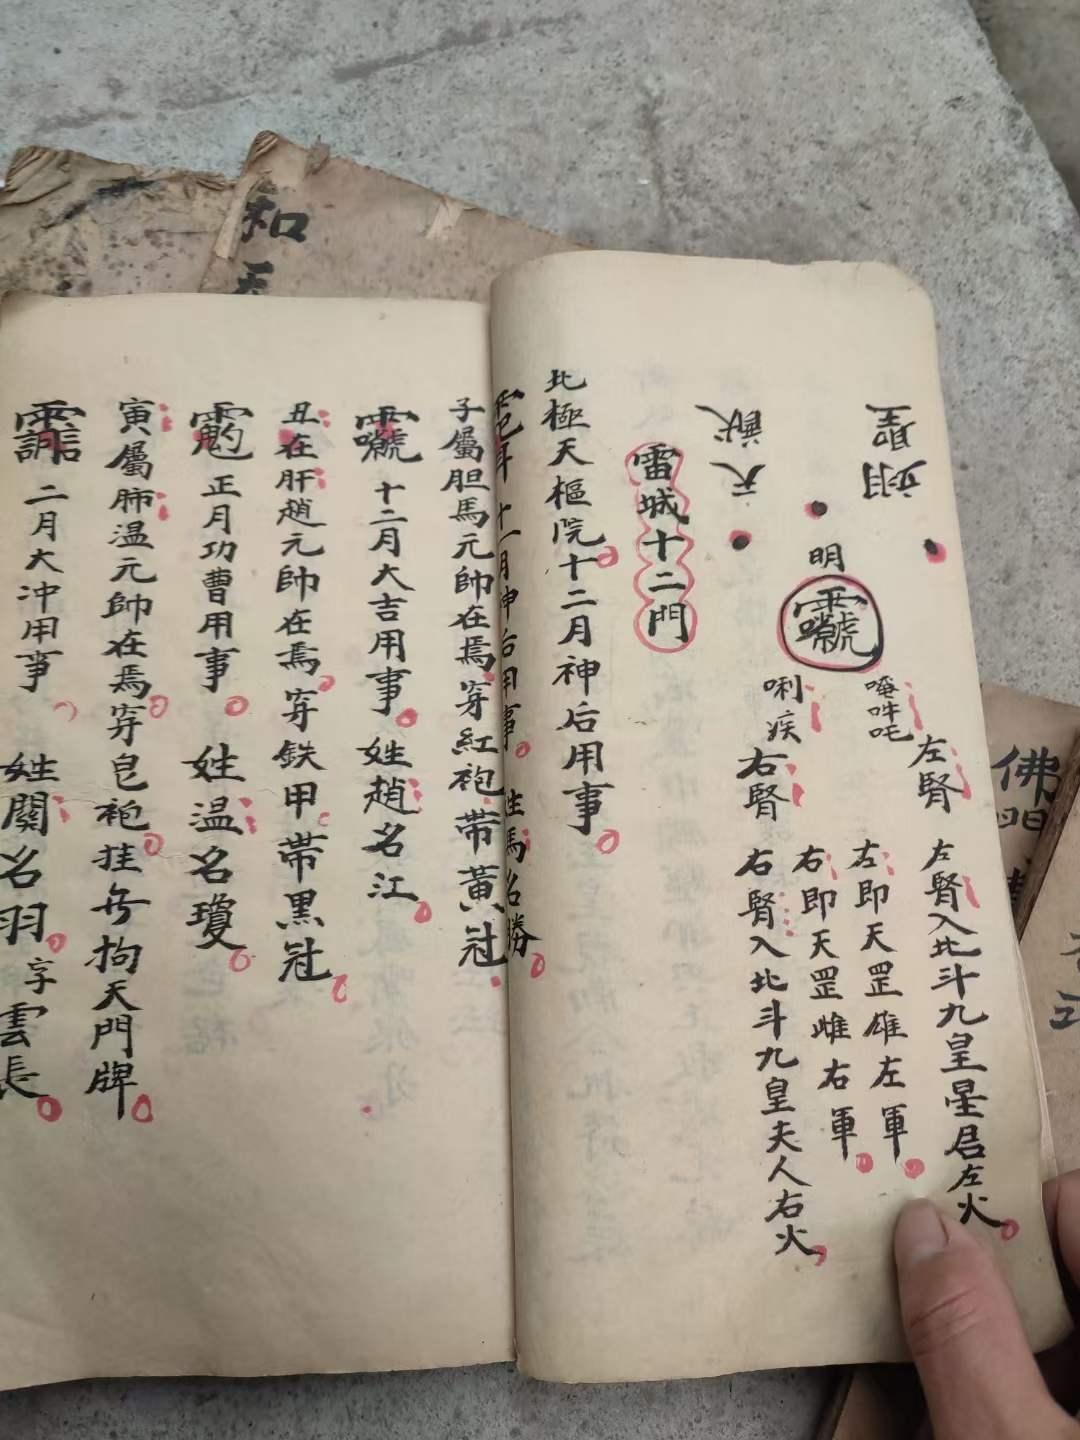 左腎
左腎入北斗九皇星君左火
左即天罡雄左軍
明
右即天罡雌右軍
唎疾
右腎
右腎入北斗九皇夫人右火
雷城十二門
北極天樞院十二月神后用事
十一月神后用事 姓馬名勝
子屬胆馬元帥在焉穿紅袍帶黃冠
十二月大吉用事 姓趙名江
丑在肝趙元帥在焉穿鉄甲帶黑冠
正月功曹用事 姓温名瓊
寅屬肺温元帥在焉穿皂袍挂無拘天門牌
二月大冲用事 姓関名羽字雲長
和天
佛